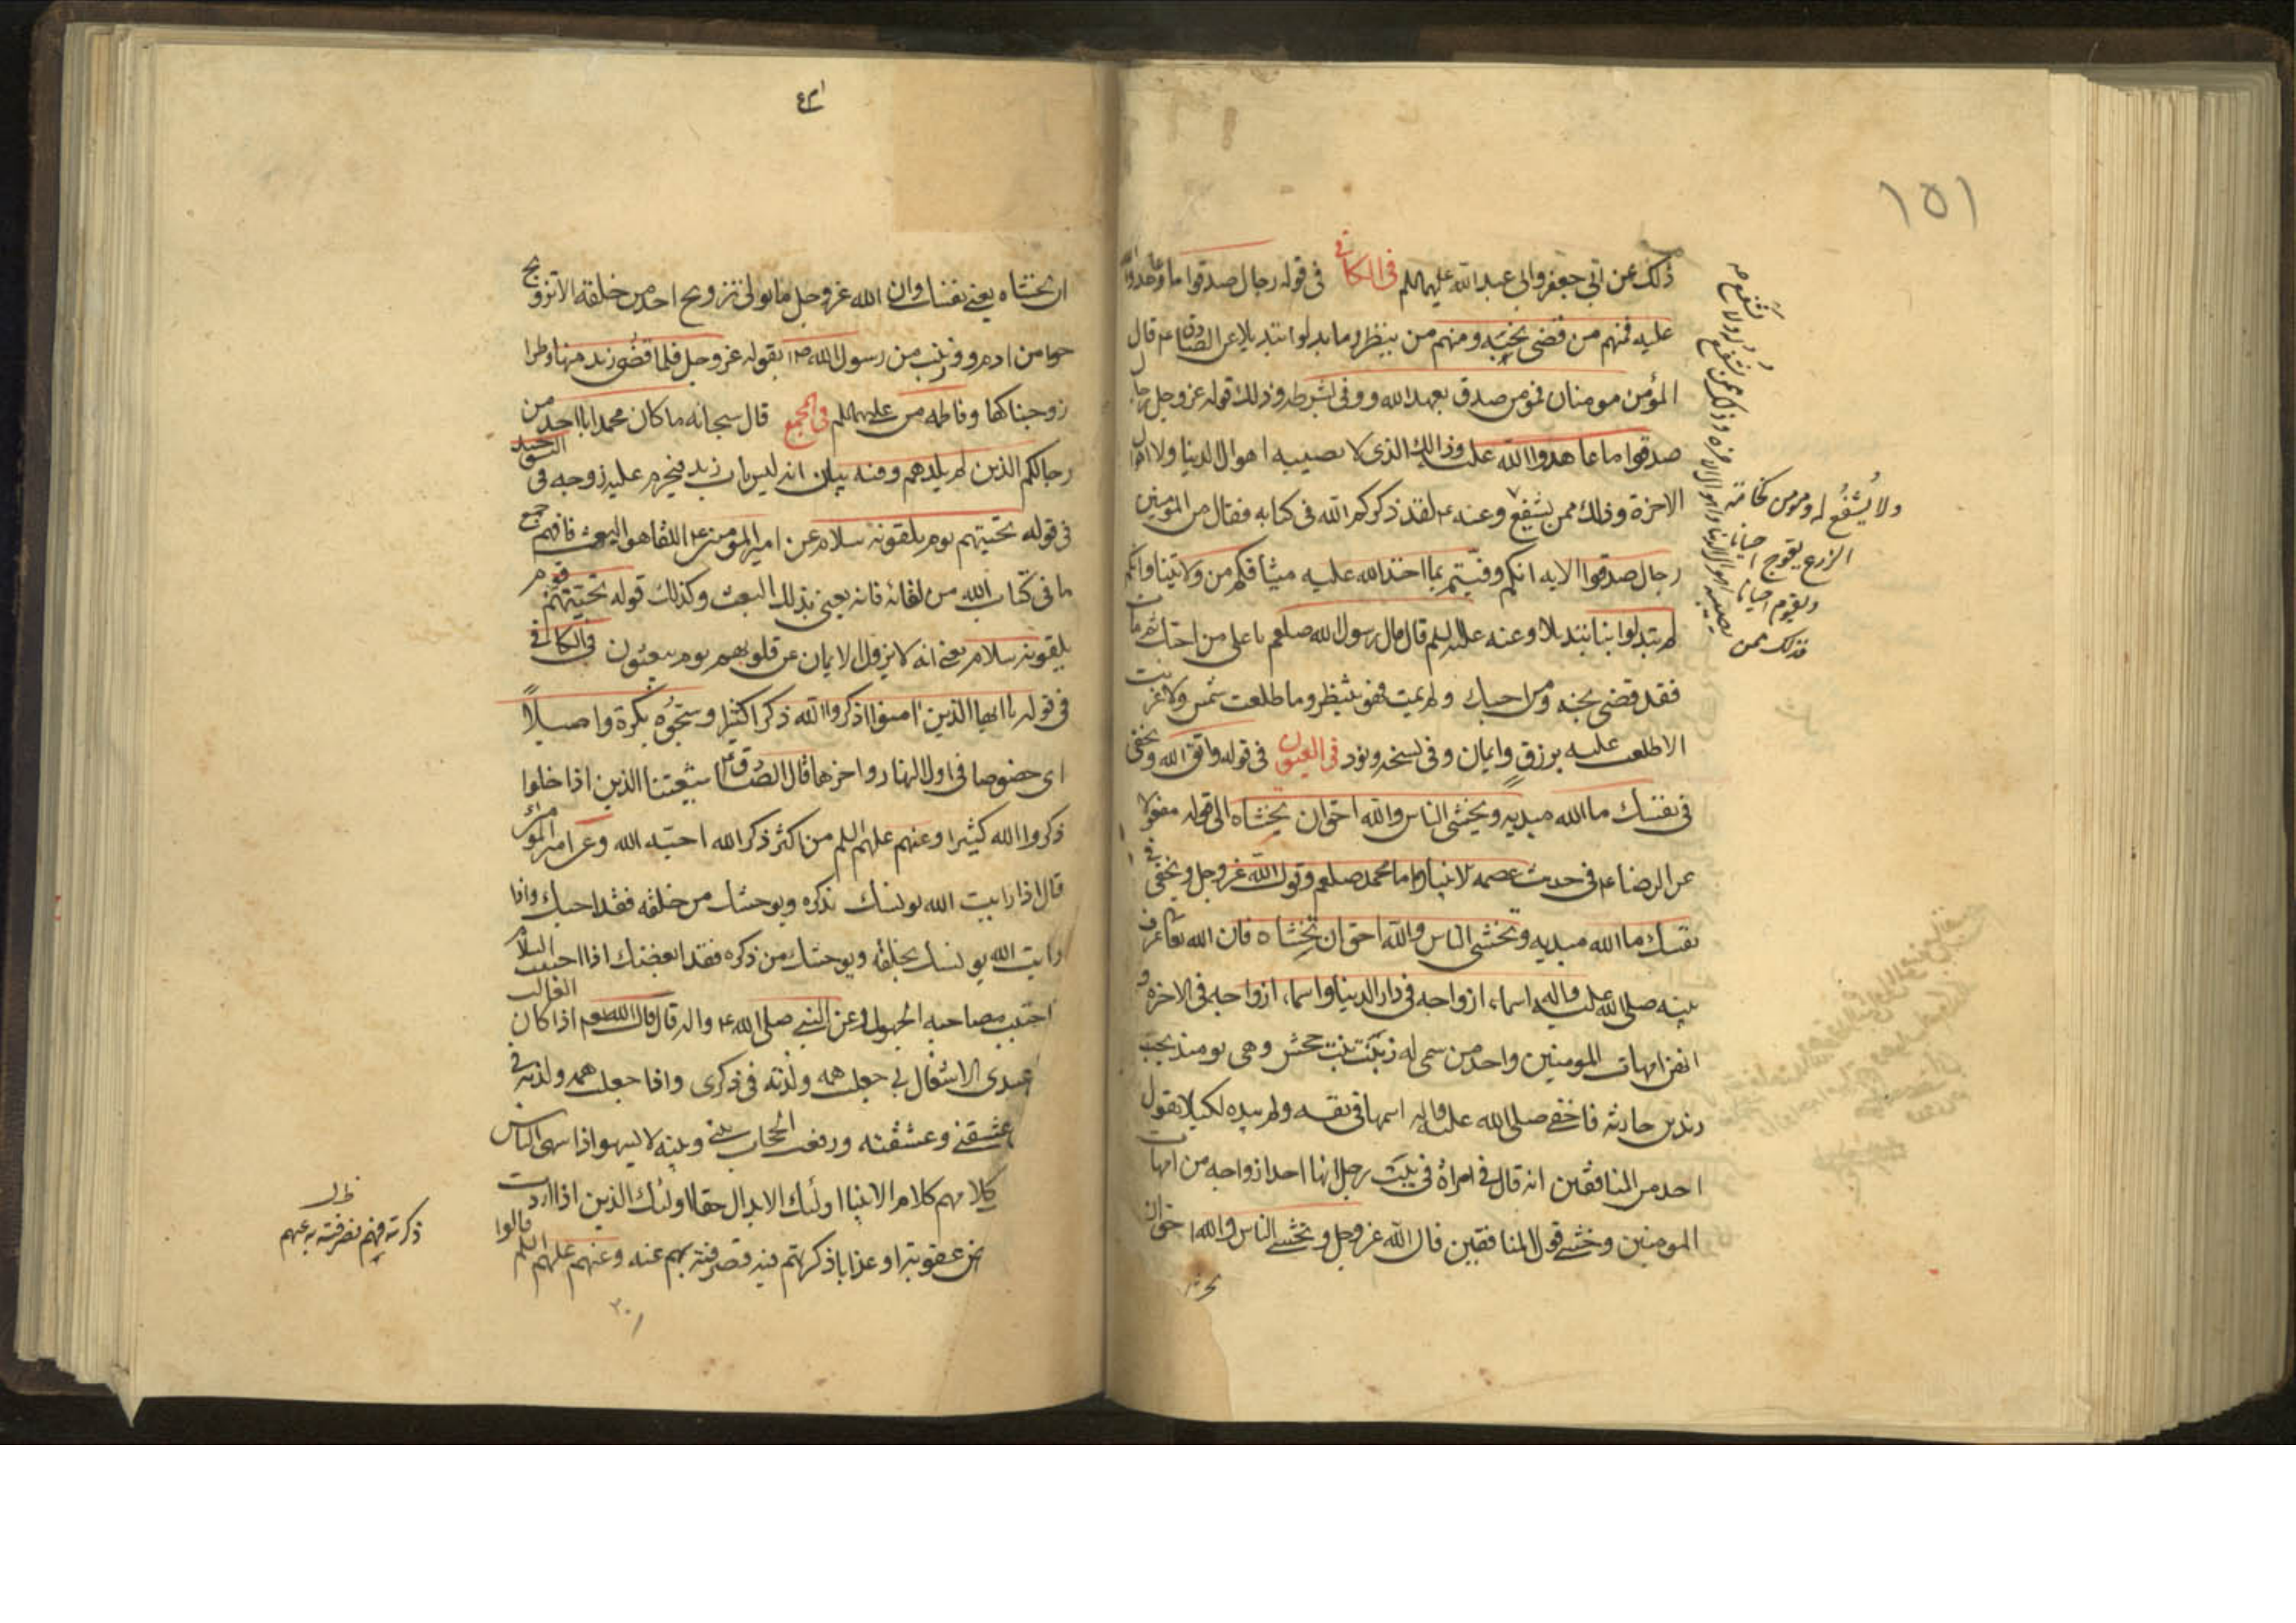 ١٥١
ذلك عن ابي جعفر وابي عبد الله عليهما السلم في الكافي في قوله رجال صدقوا ما عاهدوا الله
عليه فمنهم من قضى نحبه ومنهم من ينتظر وما بدلوا تبديلا عن الصادق ع قال
المؤمن مومنان فمومن صدق بعهد الله ووفى بشرطه وذلك قوله عز وجل رجال
صدقوا ما عاهدوا الله عليه وذالك الذى لا تصيبه اهوال الدنيا ولا اهوال
الاخرة وذلك ممن يشفع وعنه ع لقد ذكركم الله في كتابه فقال من المومنين
رجال صدقوا الايه انكم وفيتم بما اخذ الله عليه ميثاقكم من ولايتنا وانكم
لم تبدلوا بنا تبديلا وعنه عليه السلم قال قال رسول الله صلعم يا على من احبك ثم مات
فقد قضى نحبه ومن احبك ولم يمت فهو ينتظر وما طلعت شمس ولا غربت
الا طلعت عليه برزق وايمان وفى نسخه ونور في العيون في قوله واتق الله وتخفى
فى نفسك ما الله مبديه وتخشى الناس والله احق ان تخشاه الى قوله مفعولا
عن الرضا ع فى حديث عصمه الانبياء واما محمد صلعم وقول الله عز وجل وتخفى في
نفسك ما الله مبديه وتخشى الناس والله احق ان تخشاه فان الله تعا عرف
نبيه صلى الله عليه واله اسماء ازواجه فى دار الدنيا واسماء ازواجه فى الاخرة و
انهن امهات المومنين واحد من سمى له زينب بنت جحش وهى يومئذ تحت
زيد بن حارثه فاخفى صلى الله عليه واله اسمها فى نفسه ولم يبده لكيلا يقول
احد من المنافقين انه قال فى امراة فى بيت رجل انها احد ازواجه من امهات
المومنين وخشى قول المنافقين قال الله عز وجل وتخشى الناس والله احق ان
ولا يشفع له ومومن كخامة
الزرع يعوج احيانا
ويقوم احيانا
فذلك ممن
يصيبه اهوال الدنيا واهوال الاخرة وذلك ممن يشفع له ولا
يشفع
ان تخشاه يعنى نفسك وان الله عز وجل ما تولى تزويج احد من خلقه الا تزويج
حوا من ادم و وزينب من رسول الله ص بقوله عز وجل فلما قضى زيد منها وطرا
زوجناكها وفاطمه من على عليهما السلم في المجمع قال سبحانه ما كان محمد ابا احد من
رجالكم الذين لم يلدهم وفيه بيان انه ليس باب زيد فيحرم عليه زوجه فى التوحيد
فى قوله تحيتهم يوم يلقونه سلام عن امير المومنين ع اللقا هو البعث فافهم جميع
ما فى كتاب الله من لقائه فانه يعنى بذلك البعث وكذلك قوله تحيتهم يوم
يلقونه سلام يعنى انه لا يزول الايمان عن قلوبهم يوم يبعثون في الكافي
فى قوله يا ايها الذين امنوا اذكروا الله ذكرا كثيرا وسبحوه بكرة واصيلاً
اى خصوصا فى اول النهار واخرها قال الصادق ع شيعتنا الذين اذا خلوا
ذكروا الله كثيرا وعنهم عليهم السلم من اكثر ذكر الله احبه الله وعن امير المؤمنين
قال اذا رايت الله يونسك بذكره ويوحشك من خلقه فقد احبك واذا
رايت الله يونسك بخلقه ويوحشك من ذكره فقد ابغضك اذا احببت السلامه
اجتنب مصاحبه الجهول وعن النبى صلى الله ع واله قال قال الله اذا كان الغالب
عبدى الاشتغال بى جعلت همه ولذته فى ذكرى واذا جعلت همه ولذته فى
عشقنى وعشقته ورفعت الحجاب بينى وبينه لا يسهو اذا سهى الناس
كلامهم كلام الانبيا اولئك الابدال حقا اولئك الذين اذا اردت
عقوبة او عذابا ذكرتهم فيه فصرفته بهم عنه وعنهم عليهم السلم قالوا
ذكرته فيهم فصرفته به عنهم